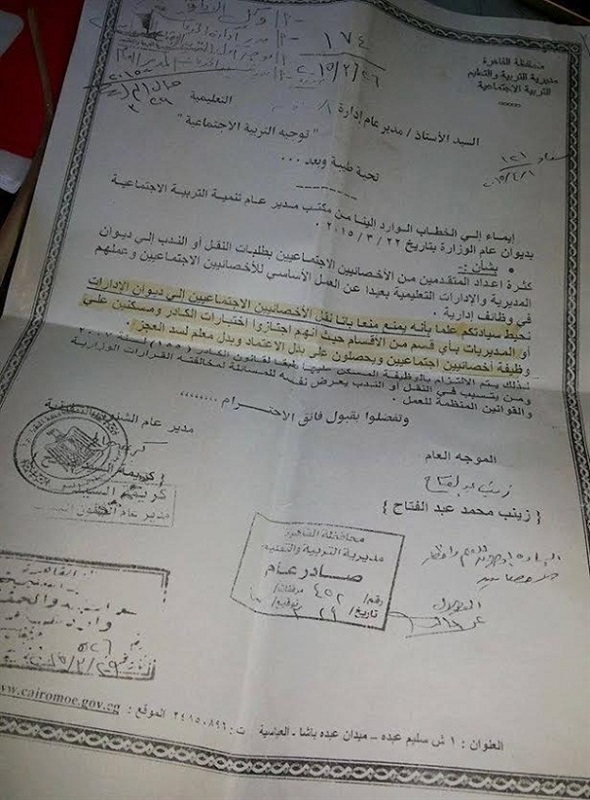 محافظة القاهرة
مديرية التربية والتعليم
التربية الاجتماعية
١٧٤
٢٠١٥/٣/٢٦
السيد الأستاذ / مدير عام إدارة / التعليمية
" توجيه التربية الاجتماعية "
تحية طيبة وبعد ...
إيماء إلي الخطاب الوارد الينا من مكتب مدير عام تنمية التربية الاجتماعية
بديوان عام الوزارة بتاريخ ٢٢ / ٣ / ٢٠١٥ .
• بشأن :-
كثرة اعداد المتقدمين من الأخصائيين الاجتماعيين بطلبات النقل أو الندب إلي ديوان
المديرية والإدارات التعليمية بعيدا عن العمل الأساسي للأخصائيين الاجتماعيين وعملهم
في وظائف إدارية .
نحيط سيادتكم علما بأنه يمنع منعا باتا نقل الأخصائيين الاجتماعيين إلي ديوان الإدارات
أو المديريات بأي قسم من الأقسام حيث أنهم اجتازوا اختبارات الكادر ومسكنين علي
وظيفة أخصائيين اجتماعيين ويحصلون علي بدل الاعتماد وبدل معلم لسد العجز .
لذلك يتم الالتزام بالوظيفة المسكن عليها طبقا لقانون الكادر (١٥٥) لسنة ٢٠٠٧
ومن يتسبب في النقل أو الندب يعرض نفسه للمسائلة لمخالفته القرارات الوزارية
والقوانين المنظمة للعمل .
وتفضلوا بقبول فائق الاحترام ........
الموجه العام
زينب عبد الفتاح
{ زينب محمد عبد الفتاح }
مدير عام الشئون
{ كريمة
محافظة القاهرة
مديرية التربية والتعليم
صادر عام
رقم / ٤٥٢ مرفقات /
تاريخ / ٢٩ / ٣ توقيع /
القاهرة
٥٢٦
العنوان : ١ ش سليم عبده – ميدان عبده باشا - العباسية ت : ٢٤١٥٠٨٩٦ الموقع : www.cairomoe.gov.eg